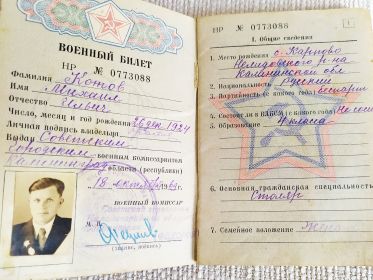 ВОЕННЫЙ БИЛЕТ
НР № 0773088
Фамилия Котов
Имя Михаил
Отчество Ильич
Число, месяц и год рождения 1924
Личная подпись владельца
Выдан Советским
городским военным комиссариатом
области (республики)
18 октября
ВОЕННЫЙ КОМИССАР
М. П.
(звание, подпись)
НР № 0773088
1
I. Общие сведения
1. Место рождения с. Карпово
Нелидовского р-на
Калининской обл
2. Национальность Русский
3. Партийность (с какого года)
4. Состоял ли в ВЛКСМ (с какого года) Не сост
5. Образование 4 класса
6. Основная гражданская специальность
Столяр
7. Семейное положение